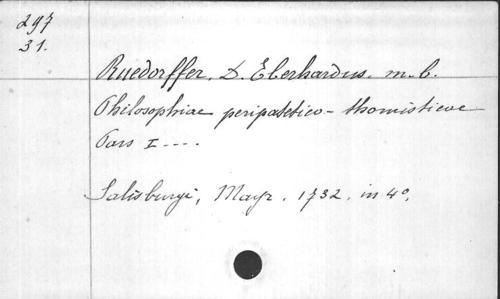 297
31.
Ruedorffer, D. Eberhardus. m. b.
Philosophiae peripatetico-thomisticae
Pars I----
Salisburgi, Mayr. 1732. in 4o.